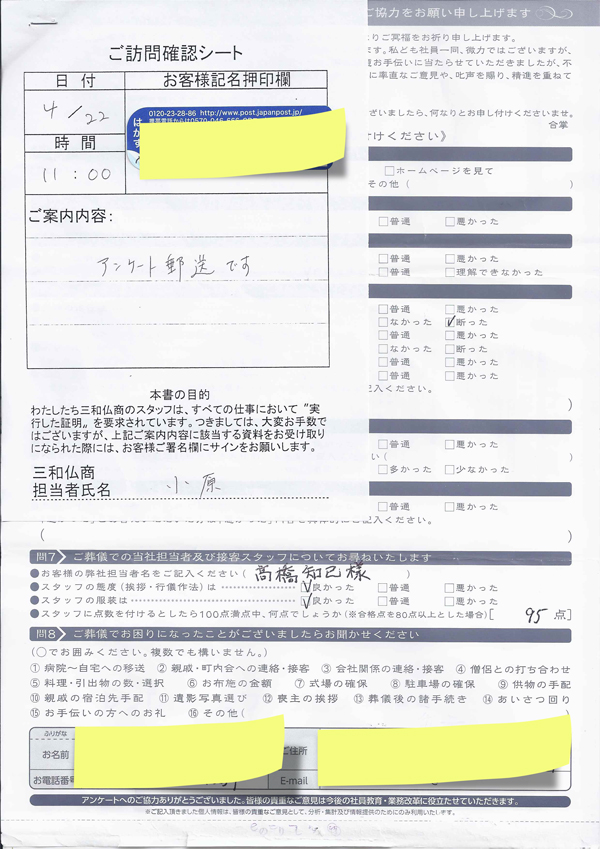 ご訪問確認シート
日付
お客様記名押印欄
4/22
0120-23-28-86 http://www.post.japanpost.jp/
時間
11:00
ご案内内容:
アンケート郵送です
本書の目的
わたしたち三和仏商のスタッフは、すべての仕事において“実
行した証明”を要求されています。つきましては、大変お手数で
はございますが、上記ご案内内容に該当する資料をお受け取り
になられた際には、お客様ご署名欄にサインをお願いします。
三和仏商
担当者氏名 小原
ご協力をお願い申し上げます
りご冥福をお祈り申し上げます。
ます。私ども社員一同、微力ではございますが、
お手伝いに当たらせていただきましたが、不
に率直なご意見や、叱声を賜り、精進を重ねて
ございましたら、何なりとお申し付けくださいませ。
合掌
付けください》
□ホームページを見て
その他( )
□普通 □悪かった
□普通 □悪かった
□普通 □理解できなかった
□普通 □悪かった
□なかった ☑断った
□普通 □悪かった
□なかった □断った
□普通 □悪かった
□普通 □悪かった
記入ください。
)
□普通 □悪かった
い(
□多かった □少なかった
□普通 □悪かった
( )
問7 ご葬儀での当社担当者及び接客スタッフについてお尋ねいたします
●お客様の弊社担当者名をご記入ください(髙橋知己様)
●スタッフの態度(挨拶・行儀作法)は ☑良かった □普通 □悪かった
●スタッフの服装は ☑良かった □普通 □悪かった
●スタッフに点数を付けるとしたら100点満点中、何点でしょうか(※合格点を80点以上とした場合)[ 95 点]
問8 ご葬儀でお困りになったことがございましたらお聞かせください
(○でお囲みください。複数でも構いません。)
①病院〜自宅への移送 ②親戚・町内会への連絡・接客 ③会社関係の連絡・接客 ④僧侶との打ち合わせ
⑤料理・引出物の数・選択 ⑥お布施の金額 ⑦式場の確保 ⑧駐車場の確保 ⑨供物の手配
⑩親戚の宿泊先手配 ⑪遺影写真選び ⑫喪主の挨拶 ⑬葬儀後の諸手続き ⑭あいさつ回り
⑮お手伝いの方へのお礼 ⑯その他(
ふりがな
お名前
ご住所
お電話番号
E-mail
アンケートへのご協力ありがとうございました。皆様の貴重なご意見は今後の社員教育・業務改革に役立たせていただきます。
※ご記入頂きました個人情報は、皆様の貴重なご意見として、分析・集計及び情報提供のためにのみ利用いたします。